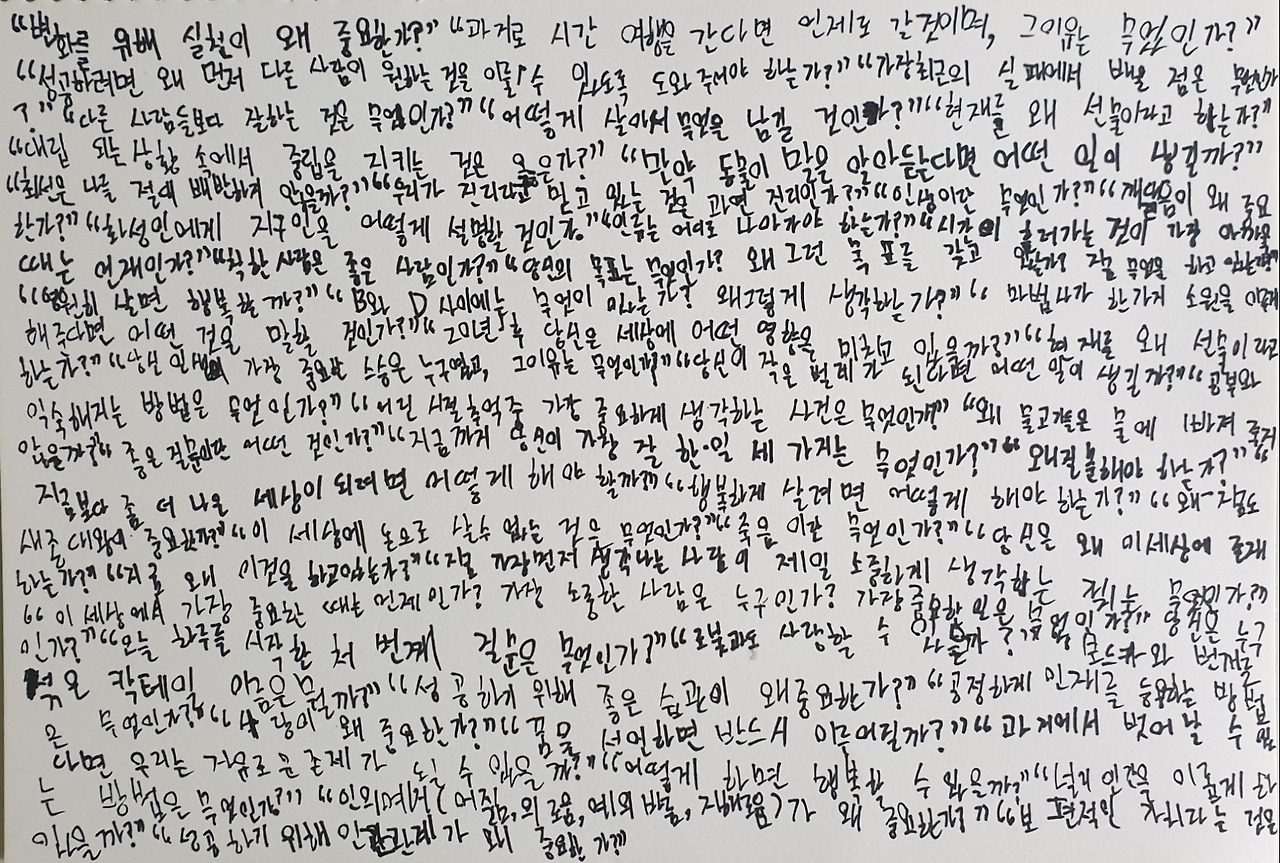 “변화를 위해 실천이 왜 중요한가?” “과거로 시간 여행을 간다면 언제로 갈것이며, 그이유는 무엇인가?”
“성공하려면 왜 먼저 다른 사람이 원하는 것을 이룰수 있도록 도와주어야 하는가?” “가장최근의 실패에서 배운 점은 무엇인가
?” “다른 사람들보다 잘하는 것은 무엇인가?” “어떻게 살아서 무엇을 남길 것인가?” “현재를 왜 선물이라고 하는가?”
“대립 되는 상황 속에서 중립을 지키는 것은 옳은가?” “만약 동물이 말을 알아듣는다면 어떤 일이 생길까?”
“최선은 나를 절대 배반하지 않을까?” “우리가 진리라고 믿고 있는 것은 과연 진리인가?” “인생이란 무엇인가?” “깨달음이 왜 중요
한가?” “화성인에게 지구인을 어떻게 설명할 것인가?” “인류는 어디로 나아가야 하는가?” “시간이 흘러가는 것이 가장 아까울
때는 언제인가?” “착한 사람은 좋은 사람인가?” “당신의 목표는 무엇인가? 왜 그런 목표를 갖고 있는가? 지금 무엇을 하고 있는가?”
“영원히 살면 행복할까?” “B와 D 사이에는 무엇이 있는가? 왜그렇게 생각하는가?” “마법사가 한가지 소원을 이루게
해준다면 어떤 것을 말할 것인가?” “20년 후 당신은 세상에 어떤 영향을 미치고 있을까?” “현재를 왜 선물이라고
하는가?” “당신 인생의 가장 중요한 스승은 누구였고, 그이유는 무엇인가?” “당신이 작은 벌레가 된다면 어떤 일이 생길까?” “공부와
익숙해지는 방법은 무엇인가?” “어린 시절 추억중 가장 중요하게 생각하는 사건은 무엇인가?” “왜 물고기들은 물에 빠져 죽지
않을까?” 좋은 질문이란 어떤 것인가?” “지금까지 당신이 가장 잘 한일 세 가지는 무엇인가?” “왜질문해야 하는가?”
지금보다 좀 더 나은 세상이 되려면 어떻게 해야 할까?” “행복하게 살려면 어떻게 해야 하는가?” “왜
세종대왕이 중요한가?” “이 세상에 돈으로 살수 없는 것은 무엇인가?” “죽음 이란 무엇인가?” “당신은 왜 이세상에 존재
하는가?” “지금 왜 이것을 하고있는가?” “지금 가장먼저 생각나는 사람이 제일 소중하게 생각하는 것은 무엇인가?”
“이 세상에서 가장 중요한 때는 언제인가? 가장 소중한 사람은 누구인가? 가장중요한 일은 무엇인가?” 당신은 누구
인가?” “오늘 하루를 시작한 첫 번째 질문은 무엇인가?” “로봇과도 사랑할 수 있을까?”
섞은 칵테일 이름은뭘까?” “성공하기 위해 좋은 습관이 왜중요한가?” “공정하게 인재를 등용하는 방법
은 무엇인가?” “사랑이 왜 중요한가?” “꿈을 선언하면 반드시 이루어질까?” “과거에서 벗어날 수 있
다면 우리는 자유로운존재가 될 수 있을까?” “어떻게 하면 행복할 수 있을까?”
는 방법은 무엇인가?” “인의예지(어짊, 의로움, 예의바름, 지혜로움)가 왜 중요한가?” “보편적인 진리라는 것은
있을까?” “성공하기 위해 인간관계가 왜 중요한가?”